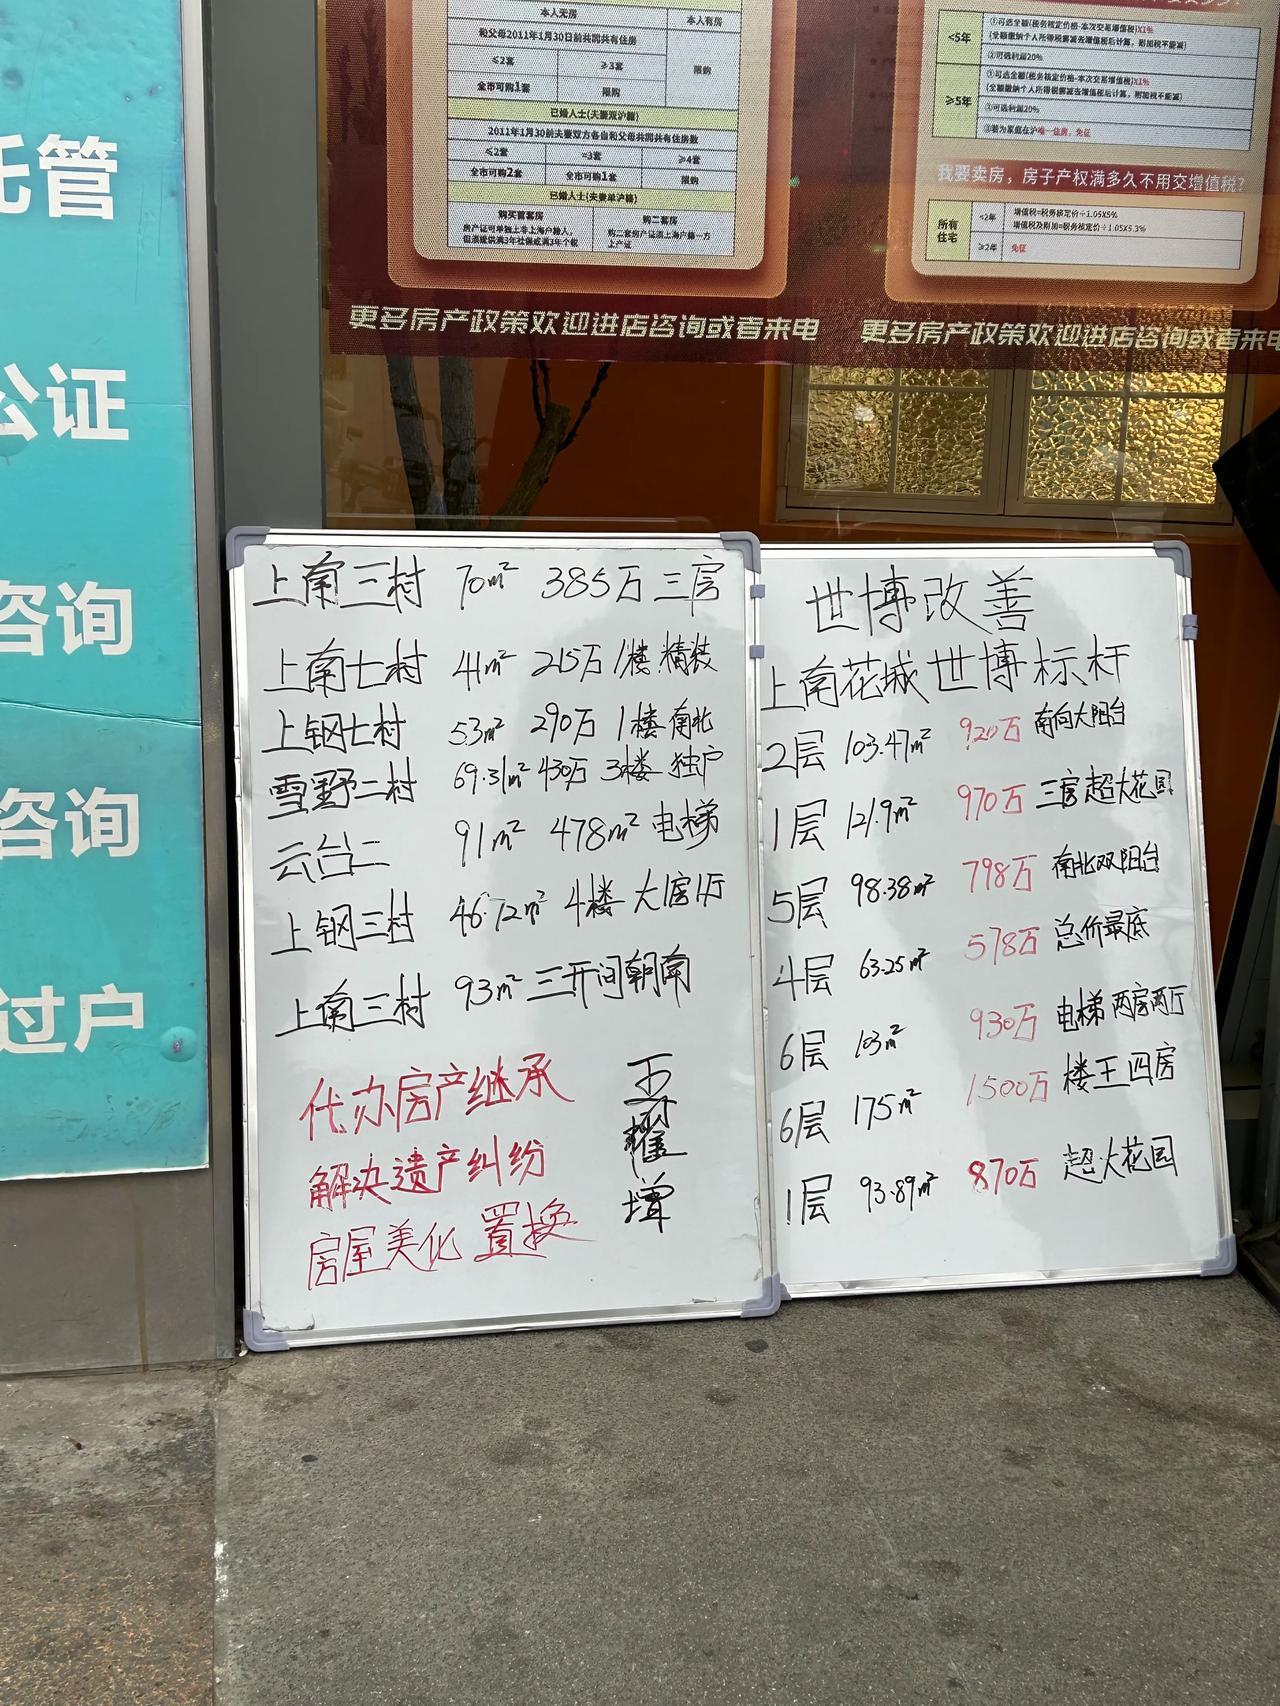 托管
公证
咨询
咨询
过户
本人无房
本人有房
和父母2011年1月30日前共同共有住房
限购
≤2套
≥3套
全市可购1套
限购
已婚人士(夫妻双沪籍)
2011年1月30前夫妻双方各自和父母共同共有住房数
≤2套
=3套
≥4套
全市可购2套
全市可购1套
限购
已婚人士(夫妻单沪籍)
购买首套房
购二套房
房产证可单独上非上海户籍人,
但须提供满3年社保或满3年个税
购二套房产证须上海户籍一方
上产证
<5年
①可选全额(税务核定价格-本次交易增值税)X1%
(全额缴纳个人所得税需减去增值税后计算,附加税不能减)
②可选利润20%
≥5年
①可选全额(税务核定价格-本次交易增值税)X1%
(全额缴纳个人所得税需减去增值税后计算,附加税不能减)
②可选利润20%
③若为家庭在沪唯一住房,免征
我要卖房，房子产权满多久不用交增值税?
所有
住宅
<2年
增值税=税务核定价÷1.05X5%
增值税及附加=税务核定价÷1.05X5.3%
≥2年
免征
更多房产政策欢迎进店咨询或者来电
更多房产政策欢迎进店咨询或者来电
上南三村 70m² 385万 三房
上南七村 41m² 215万 1楼 精装
上钢七村 53m² 290万 1楼 南北
雪野二村 69.31m² 430万 3楼 独户
云台二 91m² 478m² 电梯
上钢三村 46.72m² 4楼 大房1厅
上南三村 93m² 三开间朝南
代办房产继承
解决遗产纠纷
房屋美化 置换
王
耀
增
世博改善
上南花城世博标杆
2层 103.47m² 920万 南向大阳台
1层 121.9m² 970万 三房超大花园
5层 98.38m² 798万 南北双阳台
4层 63.25m² 578万 总价最底
6层 103m² 930万 电梯 两房两厅
6层 175m² 1500万 楼王四房
1层 93.89m² 870万 超大花园